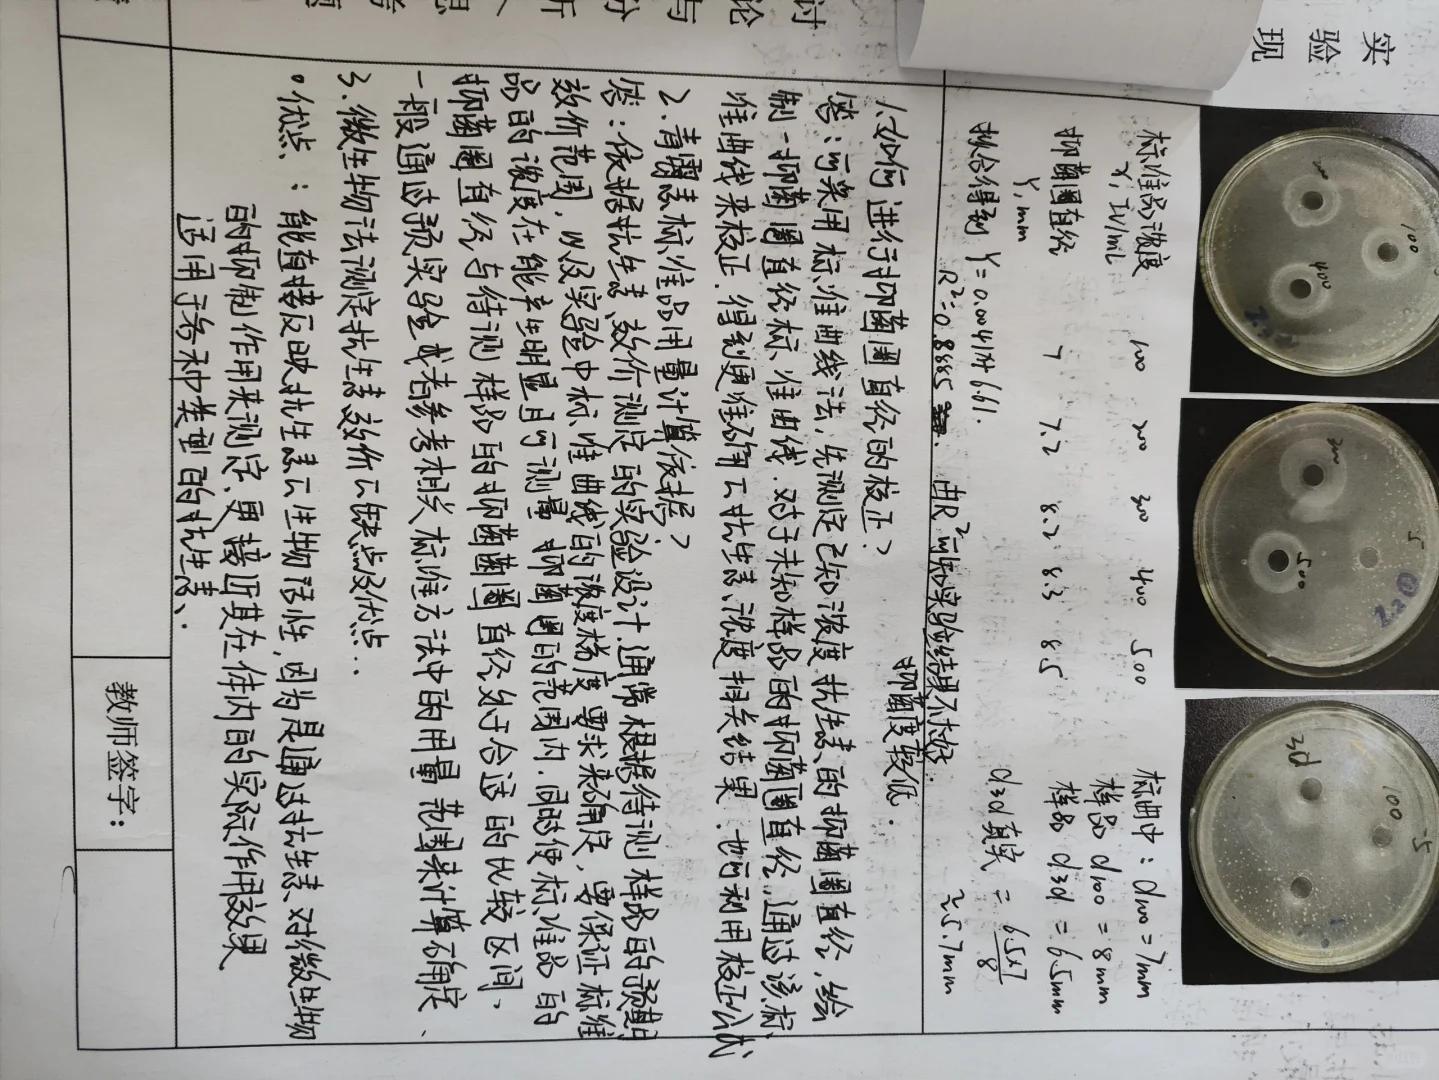 实验现
标准品浓度 X, IU/mL 100 200 300 400 500
抑菌圈直径 Y, mm 7 7.2 8.2 8.3 8.5
拟合得到 Y=0.0041X+6.61.
R²=0.8885 由R²可知实验结果不太好.
标曲中: d100=7mm
样品 d100=8mm
样品 d3d=6.5mm
d3d真实 = 6.5×7/8
≈5.7mm
抑菌度较低.
讨论与分析
1.如何进行抑菌圈直径的校正?
答:可采用标准曲线法,先测定已知浓度抗生素的抑菌圈直径,绘
制一抑菌圈直径标准曲线.对于未知样品的抑菌圈直径,通过该标
准曲线来校正.得到更准确的抗生素浓度相关结果.也可利用校正公式
2.青霉素标准品用量计算依据?
答:依据抗生素效价测定的实验设计.通常根据待测样品的预期
效价范围,以及实验中标准曲线的浓度梯度要求来确定,要保证标准
品的浓度在能产生明显可测量抑菌圈的范围内.同时使标准品的
抑菌圈直径与待测样品的抑菌圈直径处于合适的比较区间,
一般通过预实验或者参考相关标准方法中的用量范围来计算和确定、
3.微生物法测定抗生素效价的缺点及优点..
优点:能直接反映抗生素的生物活性,因为是通过抗生素对微生物
的抑制作用来测定,更接近其在体内的实际作用效果
适用于多种类型的抗生素、.
教师签字: